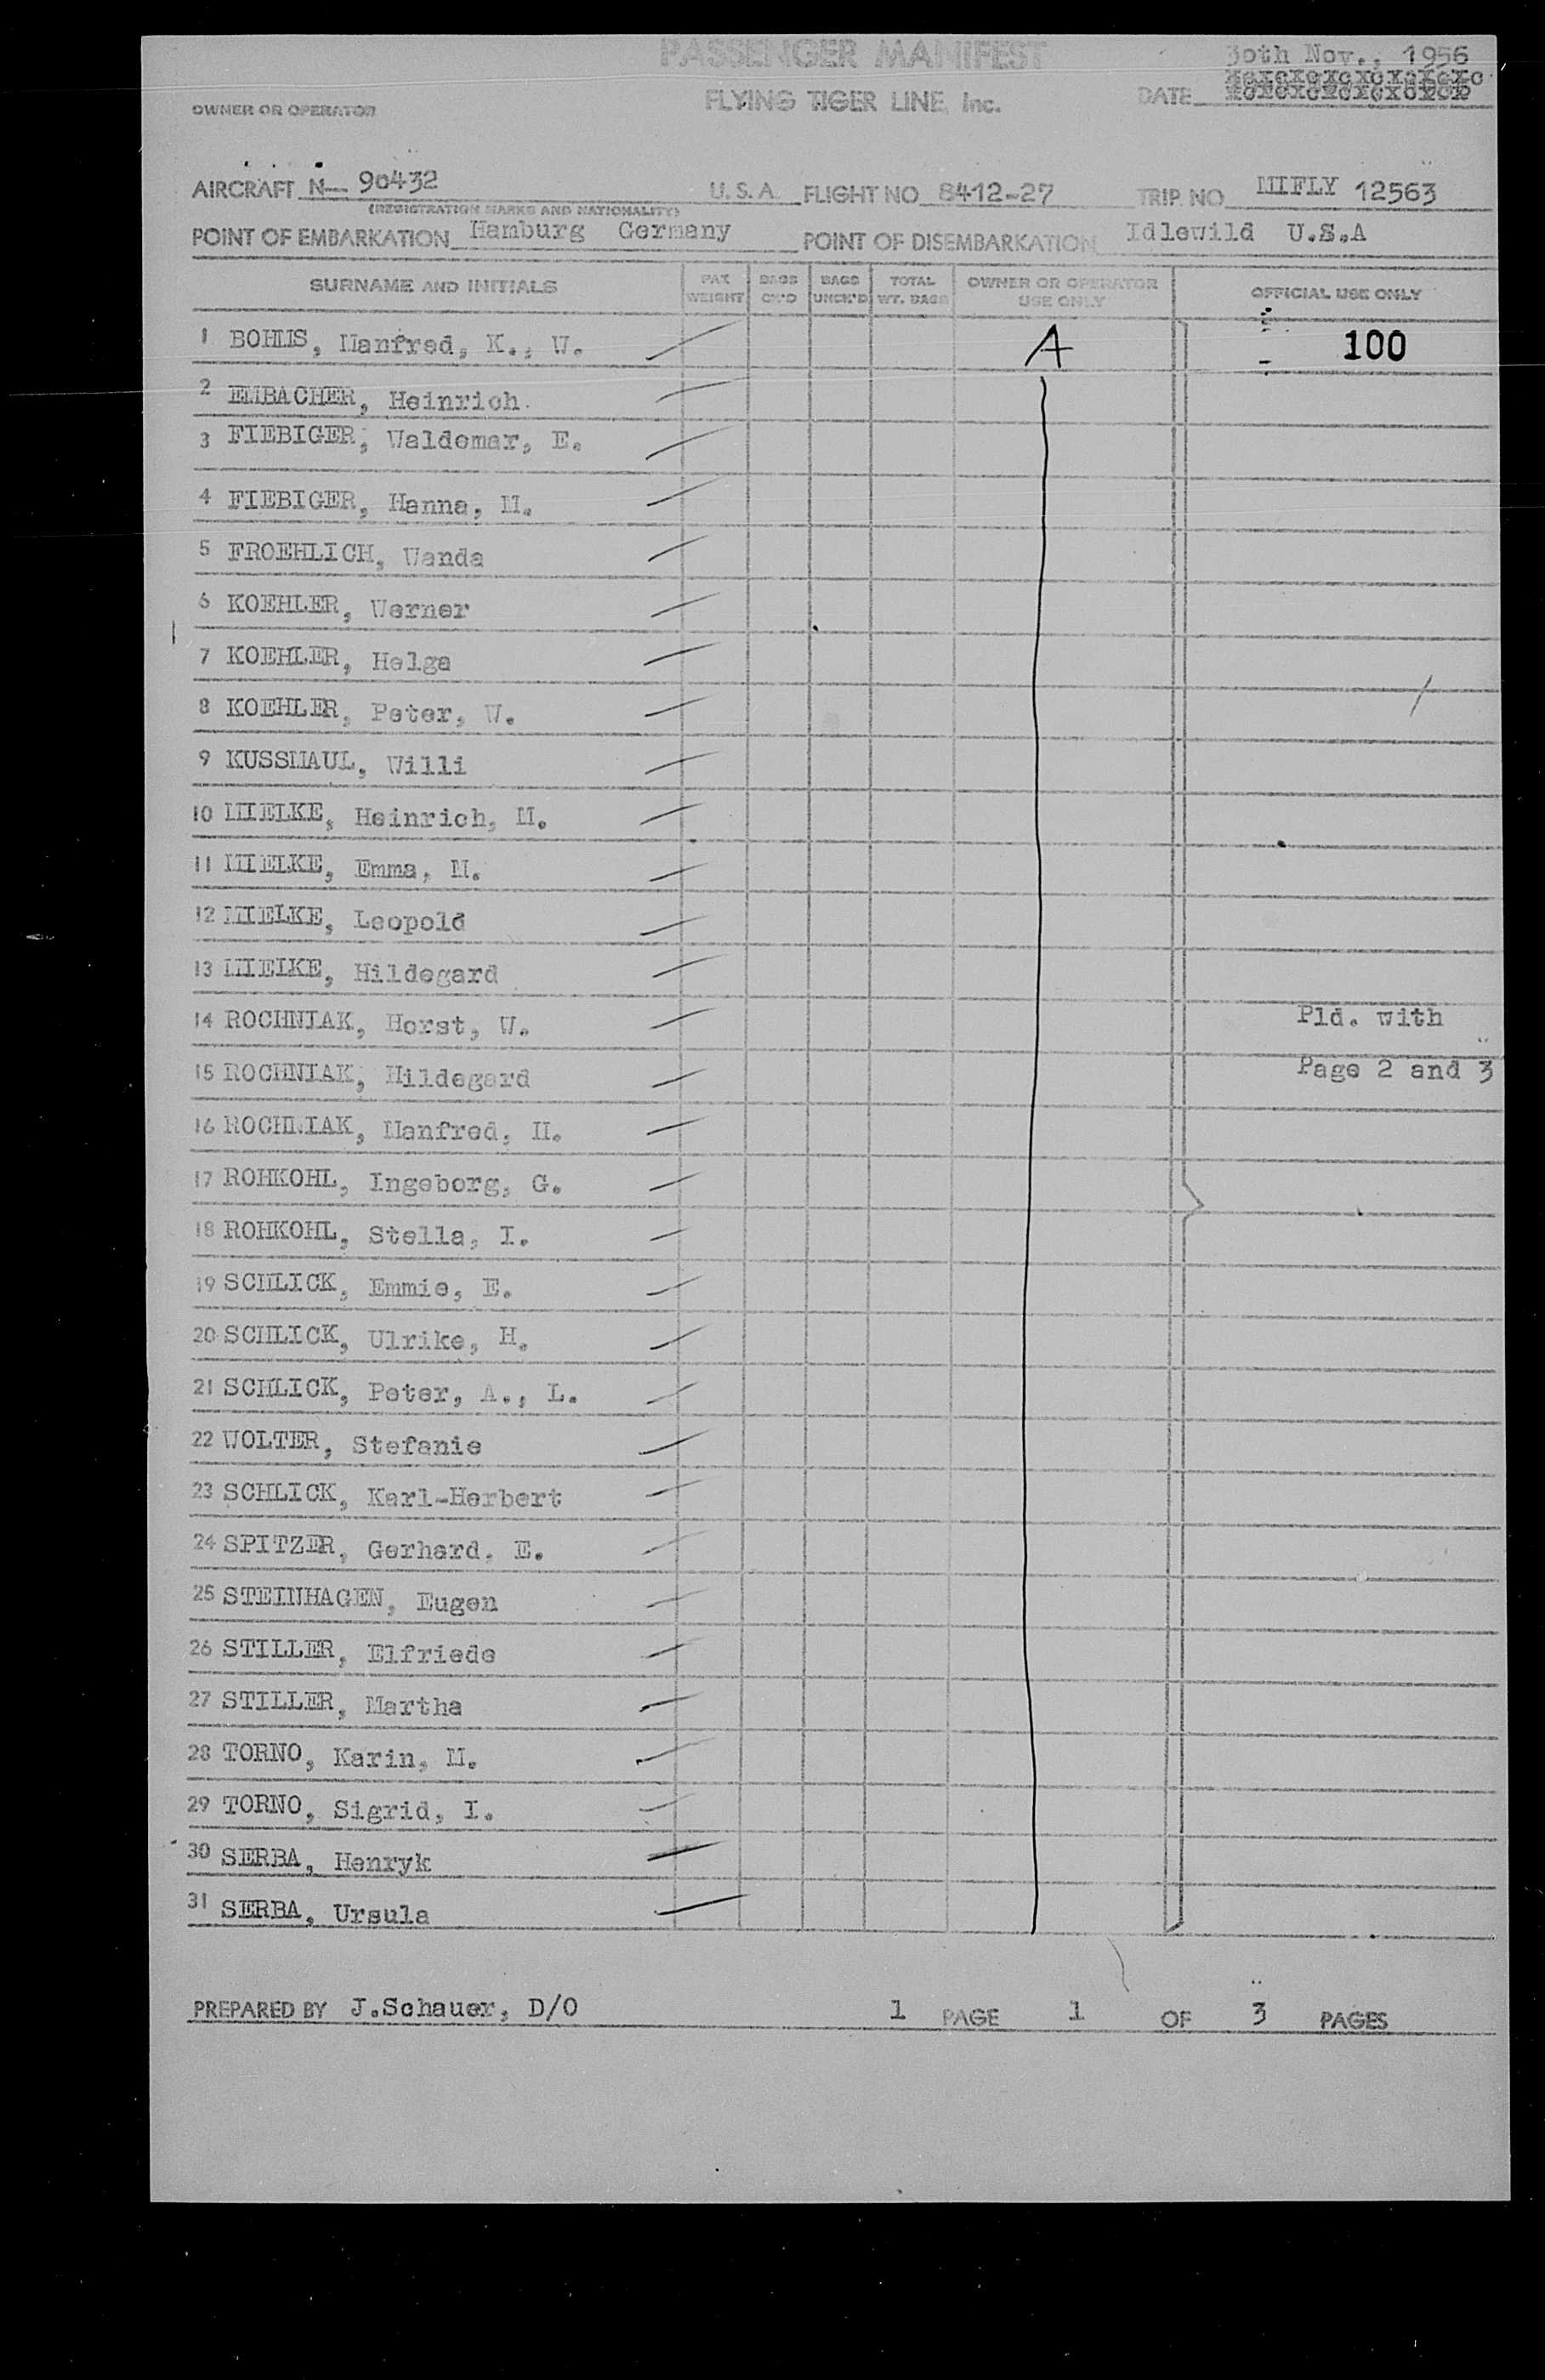 PASSENGER MANIFEST
30th Nov., 1956
FLYING TIGER LINE, Inc.
DATE
OWNER OR OPERATOR
AIRCRAFT N— 90432 U.S.A. FLIGHT NO 8412-27 TRIP. NO MIFLY 12563
(REGISTRATION MARKS AND NATIONALITY)
POINT OF EMBARKATION Hamburg Germany POINT OF DISEMBARKATION Idlewild U.S.A
SURNAME AND INITIALS PAX WEIGHT BAGS CK'D BAGS UNCK'D TOTAL WT. BAGS OWNER OR OPERATOR USE ONLY OFFICIAL USE ONLY
1 BOHMS, Manfred, K., W. A 100
2 EMBACHER, Heinrich.
3 FIEBIGER, Waldemar, E.
4 FIEBIGER, Hanna, M.
5 FROEHLICH, Wanda
6 KOEHLER, Werner
7 KOEHLER, Helga
8 KOEHLER, Peter, W.
9 KUSSMAUL, Willi
10 MIELKE, Heinrich, M.
11 MIELKE, Emma, M.
12 MIELKE, Leopold
13 MIELKE, Hildegard
14 ROCHNIAK, Horst, W. Pld. with
15 ROCHNIAK, Hildegard Page 2 and 3
16 ROCHNIAK, Manfred, H.
17 ROHKOHL, Ingeborg, G.
18 ROHKOHL, Stella, I.
19 SCHLICK, Emmie, E.
20 SCHLICK, Ulrike, H.
21 SCHLICK, Peter, A., L.
22 WOLTER, Stefanie
23 SCHLICK, Karl-Herbert
24 SPITZER, Gerhard, E.
25 STEINHAGEN, Eugen
26 STILLER, Elfriede
27 STILLER, Martha
28 TORNO, Karin, M.
29 TORNO, Sigrid, I.
30 SERBA, Henryk
31 SERBA, Ursula
PREPARED BY J.Schauer, D/O 1 PAGE 1 OF 3 PAGES